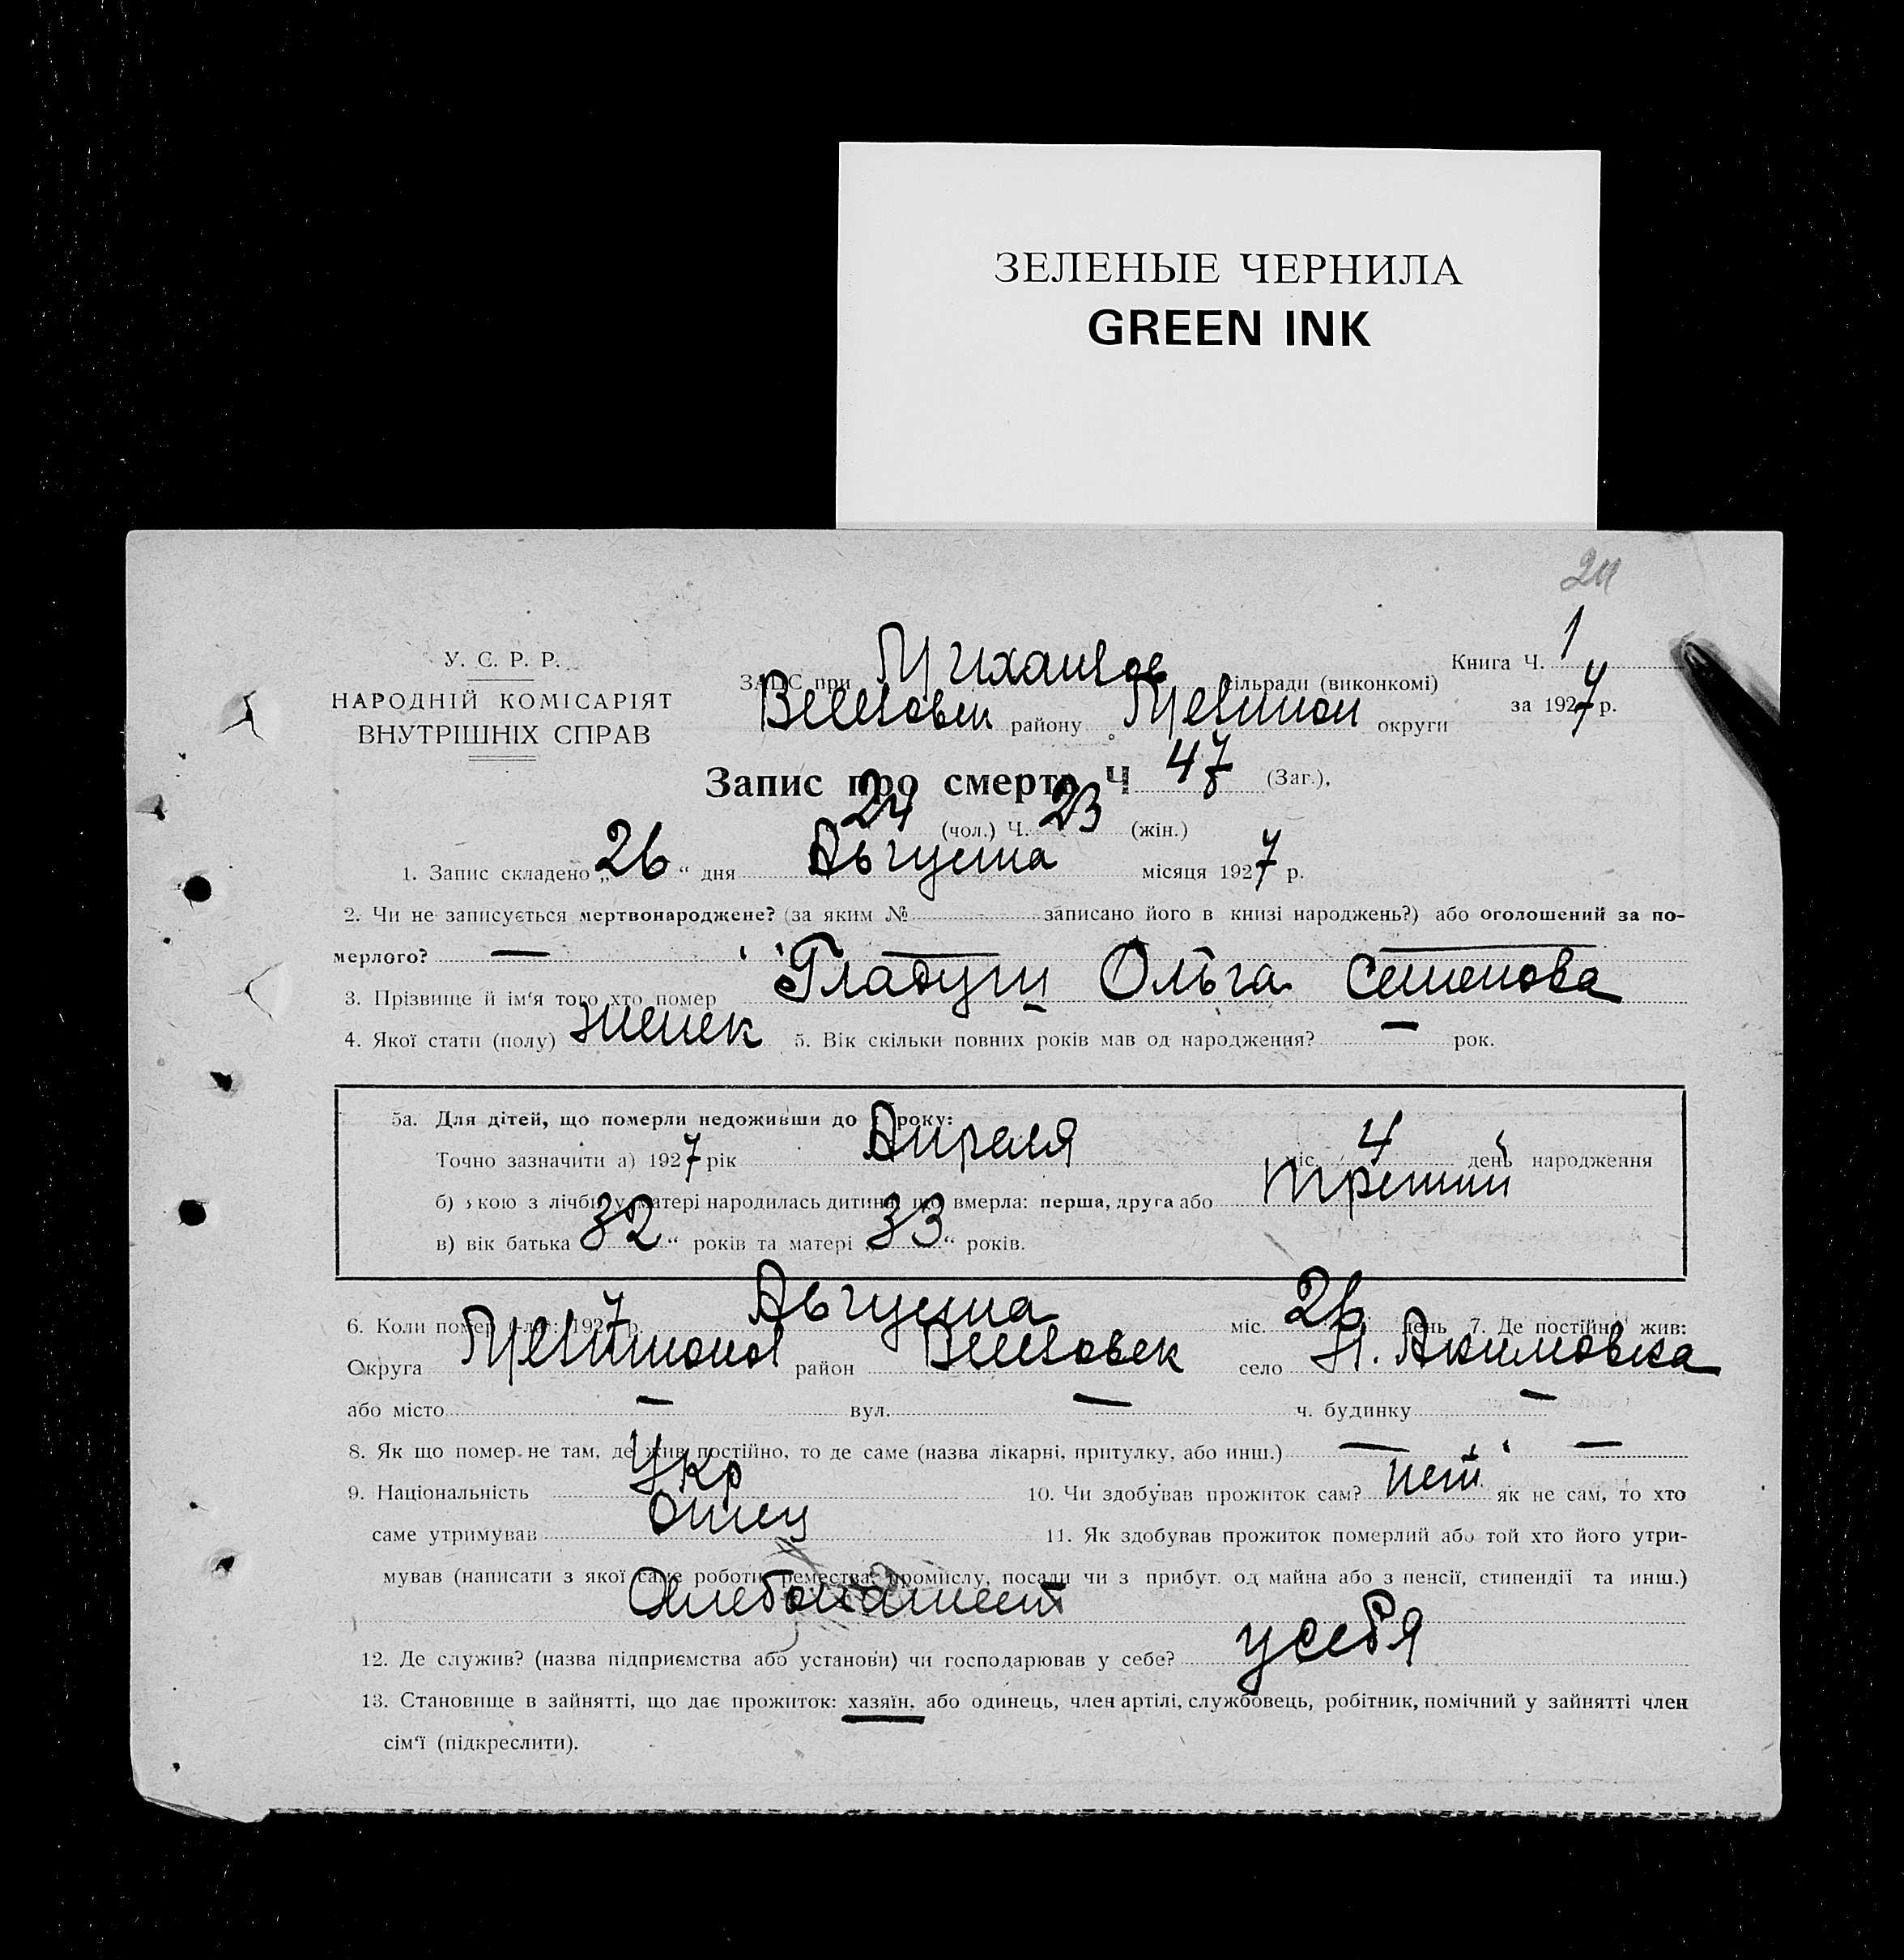 ЗЕЛЕНЫЕ ЧЕРНИЛА
GREEN INK
У. С. Р. Р.
НАРОДНІЙ КОМІСАРІЯТ
ВНУТРІШНІХ СПРАВ
Книга Ч. 1
за 1927 р.
ЗАПИС при Михайлов сільради (виконкомі)
району округи
Запис про смерть Ч 47 (Заг.),
24 (чол.) Ч. 23 (жін.)
1. Запис складено „26“ дня Августа місяця 1927 р.
2. Чи не записується мертвонароджене? (за яким № записано його в книзі народжень?) або оголошений за по-
мерлого? —
3. Прізвище й ім'я того хто помер Гладущ Ольга Семенова
4. Якої стати (полу) женск 5. Вік скільки повних років мав од народження? — рок.
5а. Для дітей, що померли недоживши до 1 року:
Точно зазначити а) 1927 рік Апреля міс. 4 день народження
б) якою з лічби у матері народилась дитина, що вмерла: перша, друга або третий
в) вік батька „32“ років та матері „33“ років.
6. Коли помер 1927 р. Августа міс. 26 день 7. Де постійно жив:
Округа район село Н. Акимовка
або місто — вул. — ч. будинку —
8. Як що помер не там, де жив постійно, то де саме (назва лікарні, притулку, або инш.) — —
9. Національність Укр 10. Чи здобував прожиток сам? нет як не сам, то хто
саме утримував отец 11. Як здобував прожиток померлий або той хто його утри-
мував (написати з якої саме роботи, ремества, промислу, посади чи з прибут. од майна або з пенсії, стипендії та инш.)
Хлебопашест
12. Де служив? (назва підприємства або установи) чи господарював у себе? у себя
13. Становище в зайнятті, що дає прожиток: хазяїн, або одинець, член артілі, службовець, робітник, помічний у зайнятті член
сім'ї (підкреслити).